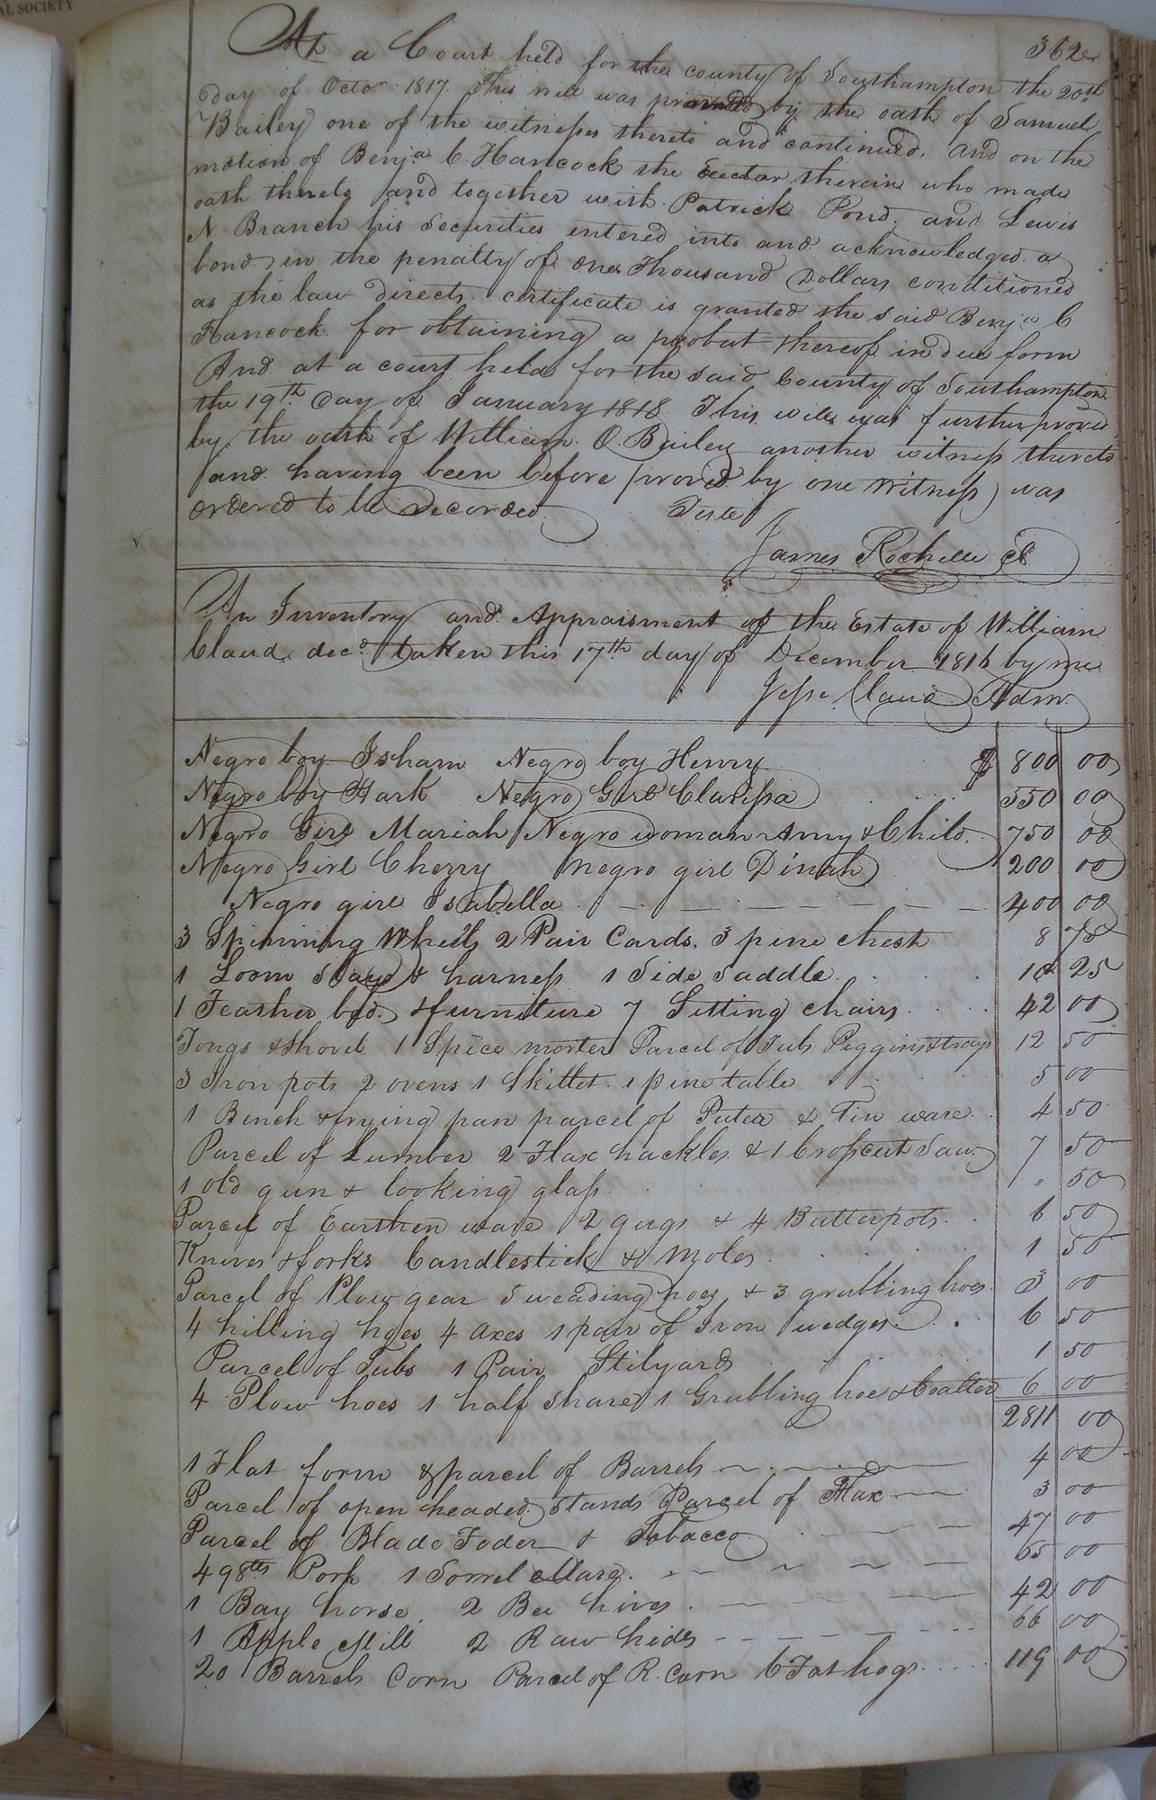 AL SOCIETY
362
At a Court held for the county of Southampton the 20th
day of Octor 1817. This will was proved by the oath of Samuel
Bailey one of the witnesses thereto and continued. And on the
motion of Benja. C. Hancock the Executor therein who made
oath thereto and together with Patrick Pond. and Lewis
N. Branch his Securities entered into and acknowledged a
bond in the penalty of one Thousand Dollars conditioned
as the law directs. certificate is granted the said Benja C
Hancock for obtaining a probat thereof in due form
And at a court held for the said County of Southampton
the 19th Day of January 1818 This will was further proved
by the oath of William O. Bailey another witness thereto
and having been before proved by one witness was
ordered to be Recorded
Teste
James Rochelle Cl
An Inventory and Appraisment of the Estate of William
Claud decd. taken this 17th day of December 1816 by me
Jesse Claud Adm.
Negro boy Isham Negro boy Henry $ 800 00
Negro boy Hark Negro Girl Clarissa 550 00
Negro Girl Mariah Negro woman Amy & Child 750 00
Negro Girl Cherry negro girl Dinah 200 00
Negro girl Isabella 400 00
3 Spinning Wheels 2 Pair Cards. 3 pine chest 8 75
1 Loom Slays & harness 1 Side Saddle 10 25
1 Feather bed. & furniture 7 Sitting chairs 42 00
Tongs & Shovel 1 Spice morter Parcel of Tubs Piggins & trays 12 50
3 Iron pots 2 ovens 1 Skillet. 1 pine table 5 00
1 Bench & frying pan parcel of Puter & Tin ware 4 50
Parcel of Lumber 2 Flax hackles & 1 Crosscut Saw 7 50
1 old gun & looking glass " 50
Parcel of Earthen ware 2 gugs & 4 Butterpots 6 50
Knives & forks Candlestick & Moles 1 50
Parcel of Plow gear 5 weading hoes & 3 grubbing hoes 3 00
4 hilling hoes 4 axes 1 pair of Iron wedges 6 50
Parcel of Tubs 1 Pair Stilyards 1 50
4 Plow hoes 1 half share 1 Grubbing hoe & Coalter 6 00
2811 00
1 Flat form & parcel of Barrels 4 00
Parcel of open headed stands Parcel of Flax 3 00
Parcel of Blade Foder & Tobacco 47 00
498lbs Pork 1 Sorrel Mare. 65 00
1 Bay horse. 2 Bee hives 42 00
1 Apple Mill 2 Raw hides 66 00
20 Barrels Corn Parcel of R. Corn 6 Fat hogs 119 00